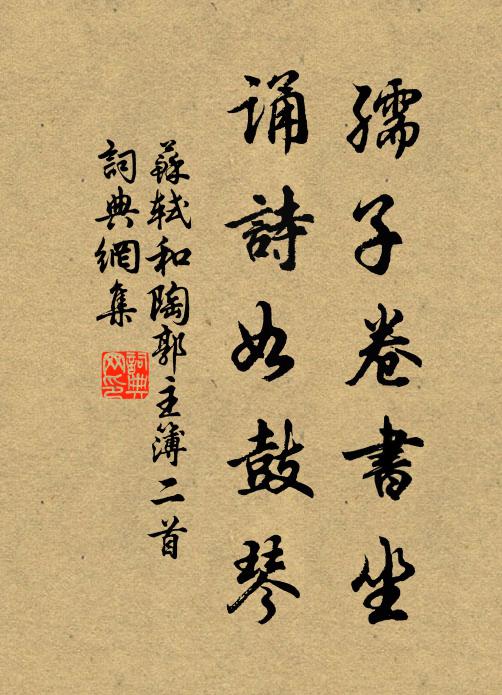 孺子卷書坐
誦詩如鼓琴
蘇軾和陶郭主簿二首
詞典網集
詞典网印